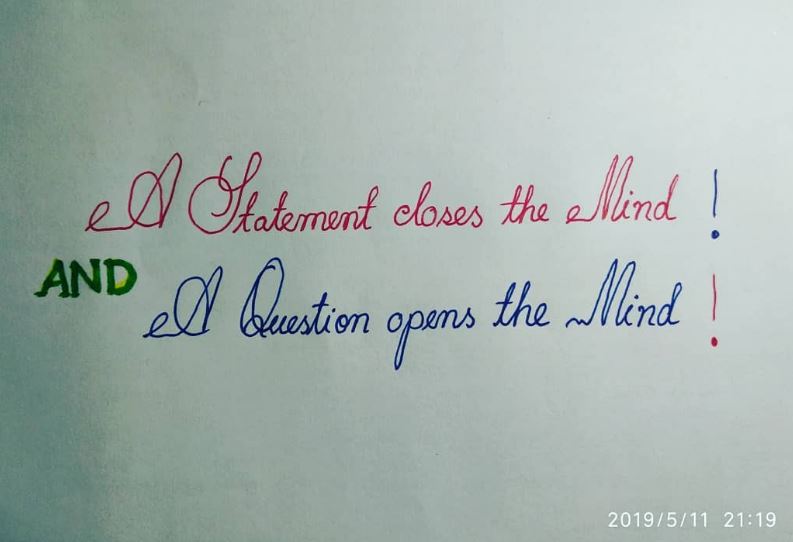 A Statement closes the Mind !
AND
A Question opens the Mind !
2019/5/11 21:19